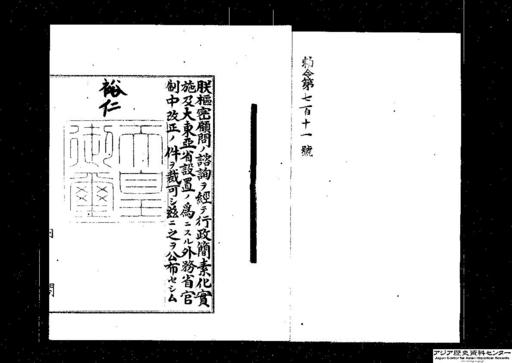 勅令第七百十一號
朕樞密顧問ノ諮詢ヲ經テ行政簡素化實
施及大東亞省設置ノ爲ニスル外務省官
制中改正ノ件ヲ裁可シ茲ニ之ヲ公布セシム
裕仁
天皇
御璽
内閣
アジア歴史資料センター
Japan Center for Asian Historical Records